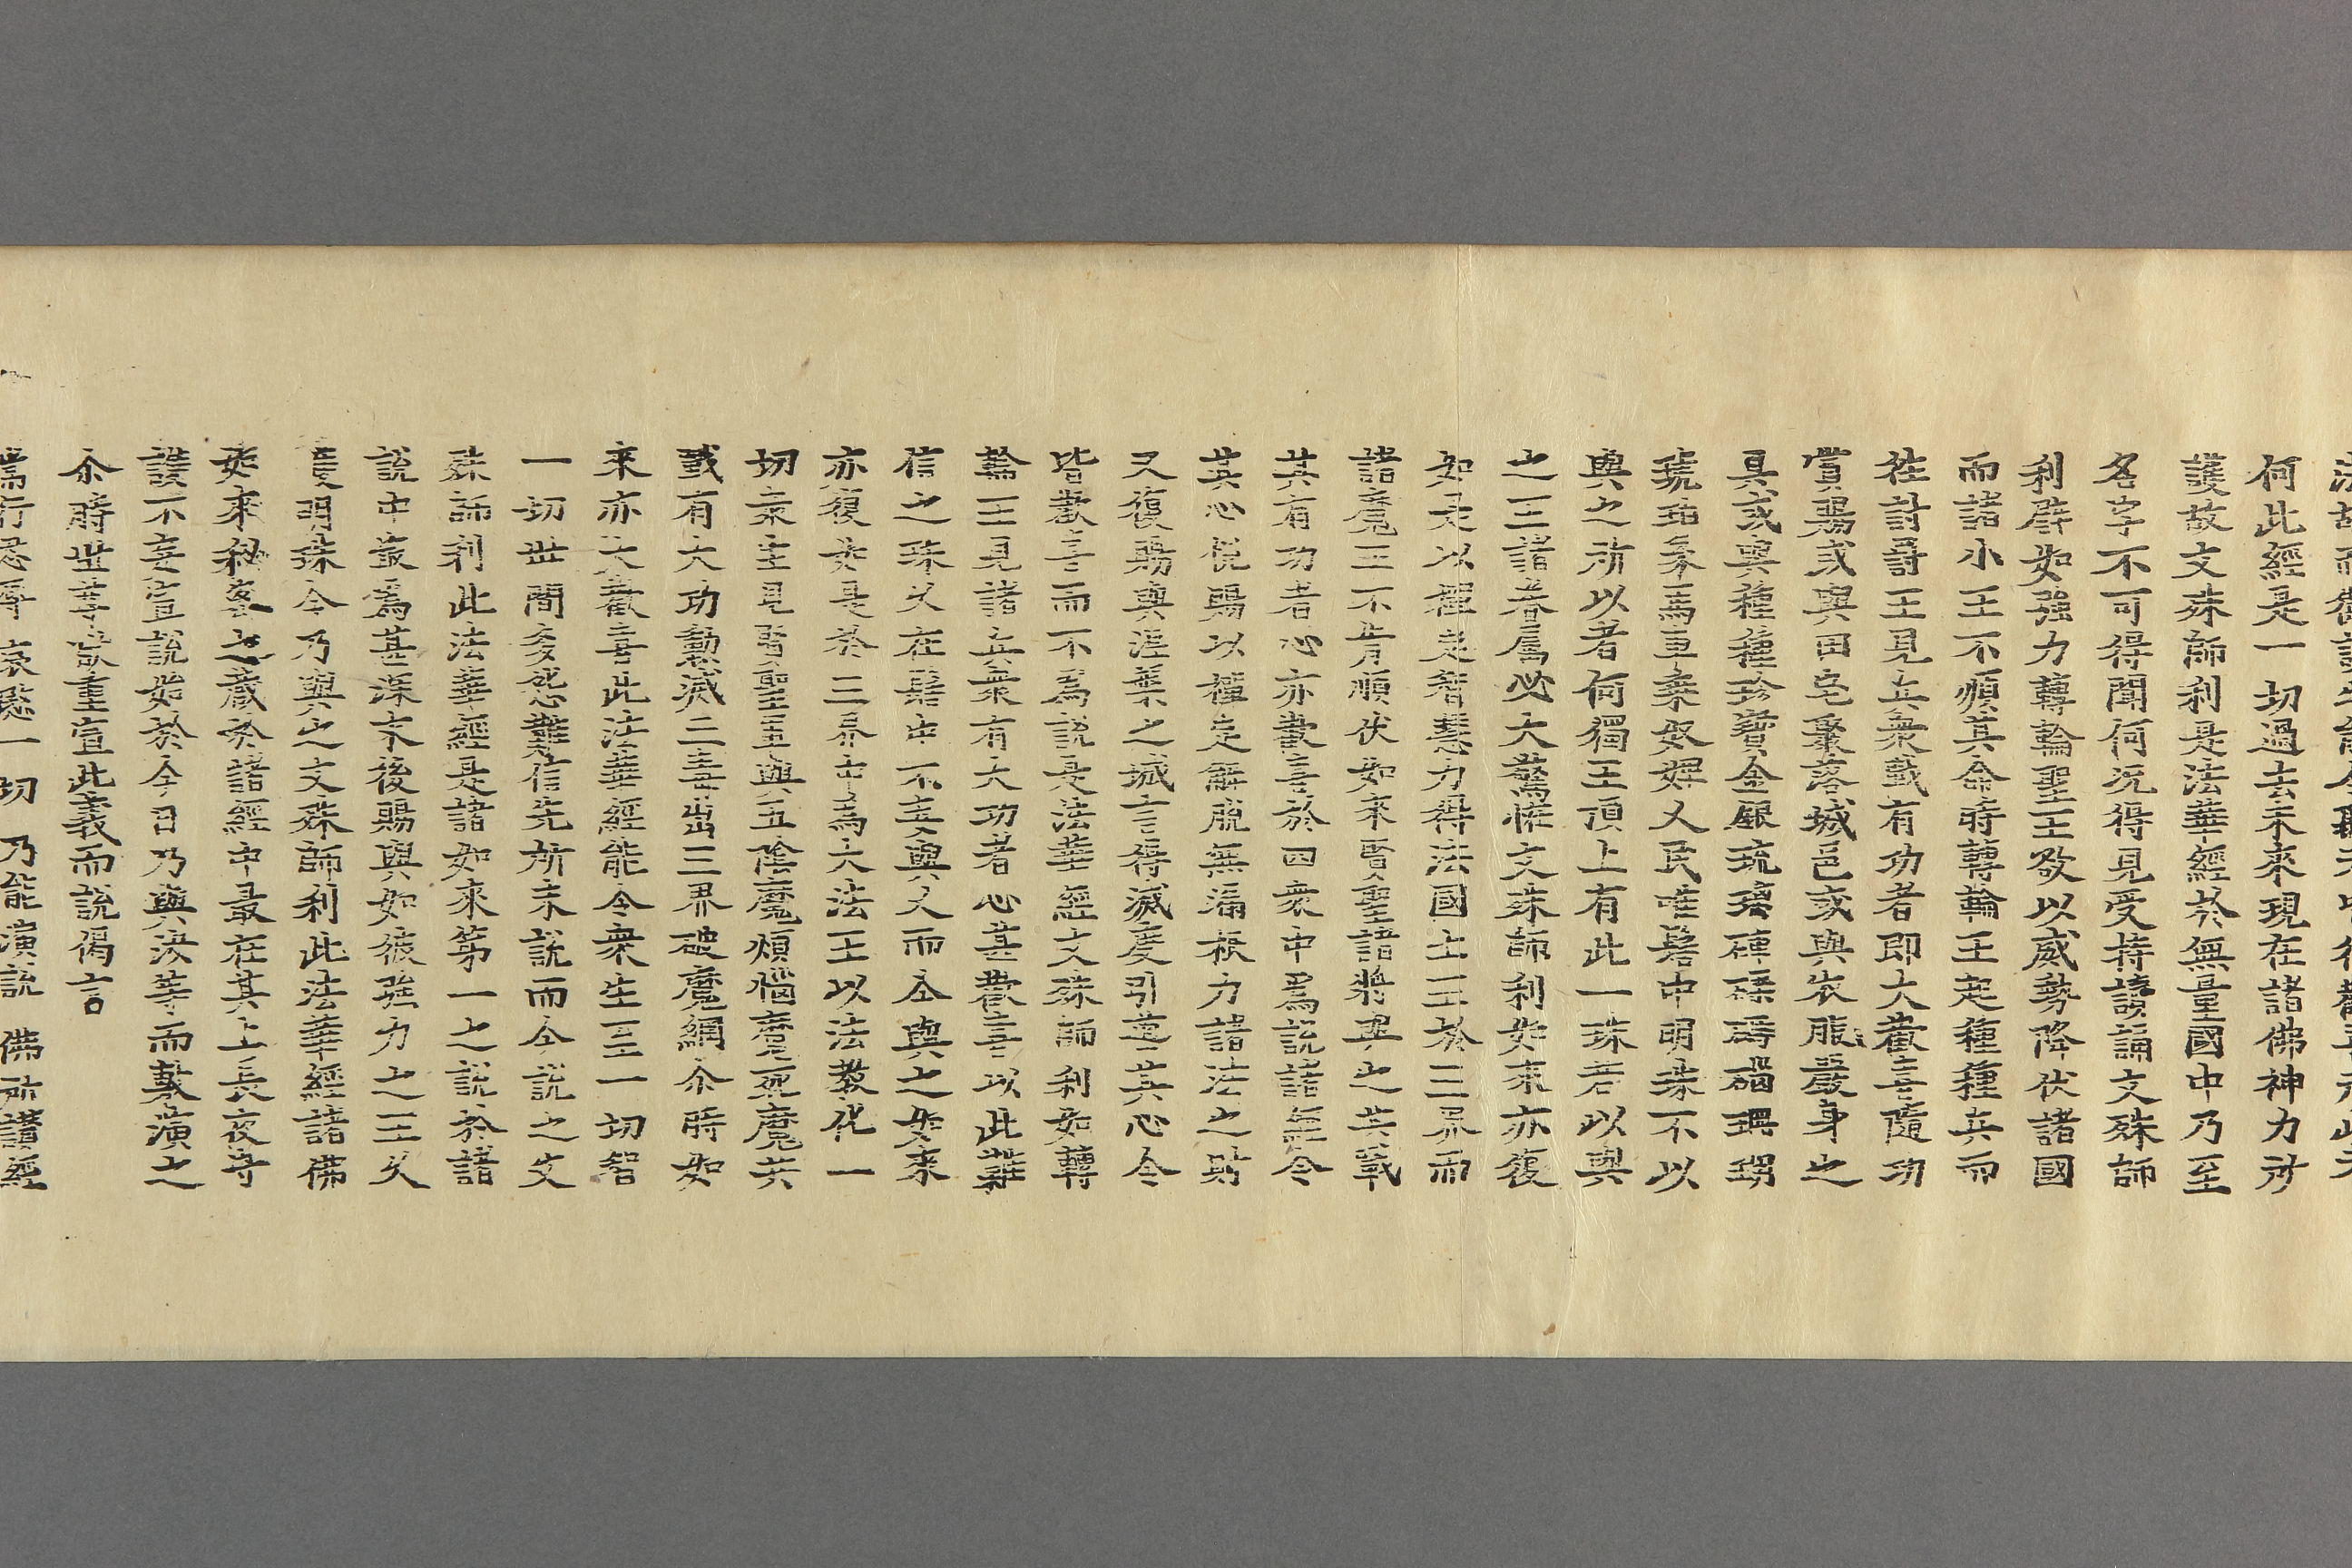 何此經是一切過去未來現在諸佛神力所
護故文殊師利是法華經於無量國中乃至
名字不可得聞何況得見受持讀誦文殊師
利譬如强力轉輪聖王欲以威勢降伏諸國
而諸小王不順其命時轉輪王起種種兵而
往討罰王見兵衆戰有功者即大歡喜隨功
賞賜或與田宅聚落城邑或與衣服嚴身之
具或與種種珍寶金銀琉璃硨磲碼碯珊瑚
琥珀象馬車乘奴婢人民唯髻中明珠不以
與之所以者何獨王頂上有此一珠若以與
之王諸眷屬必大驚怪文殊師利如來亦復
如是以禪定智慧力得法國土王於三界而
諸魔王不肯順伏如來賢聖諸將與之共戰
其有功者心亦歡喜於四衆中爲說諸經令
其心悅賜以禪定解脫無漏根力諸法之財
又復賜與涅槃之城言得滅度引導其心令
皆歡喜而不爲說是法華經文殊師利如轉
輪王見諸兵衆有大功者心甚歡喜以此難
信之珠久在髻中不妄與人而今與之如來
亦復如是於三界中爲大法王以法敎化一
切衆生見賢聖軍與五陰魔煩惱魔死魔共
戰有大功勳滅三毒出三界破魔網尒時如
來亦大歡喜此法華經能令衆生至一切智
一切世間多怨難信先所未說而今說之文
殊師利此法華經是諸如來第一之說於諸
說中最爲甚深末後賜與如彼强力之王久
護明珠今乃與之文殊師利此法華經諸佛
如來秘密之藏於諸經中最在其上長夜守
護不妄宣說始於今日乃與汝等而敷演之
尒時世尊欲重宣此義而說偈言
常行忍辱 哀愍一切 乃能演說 佛所讃經